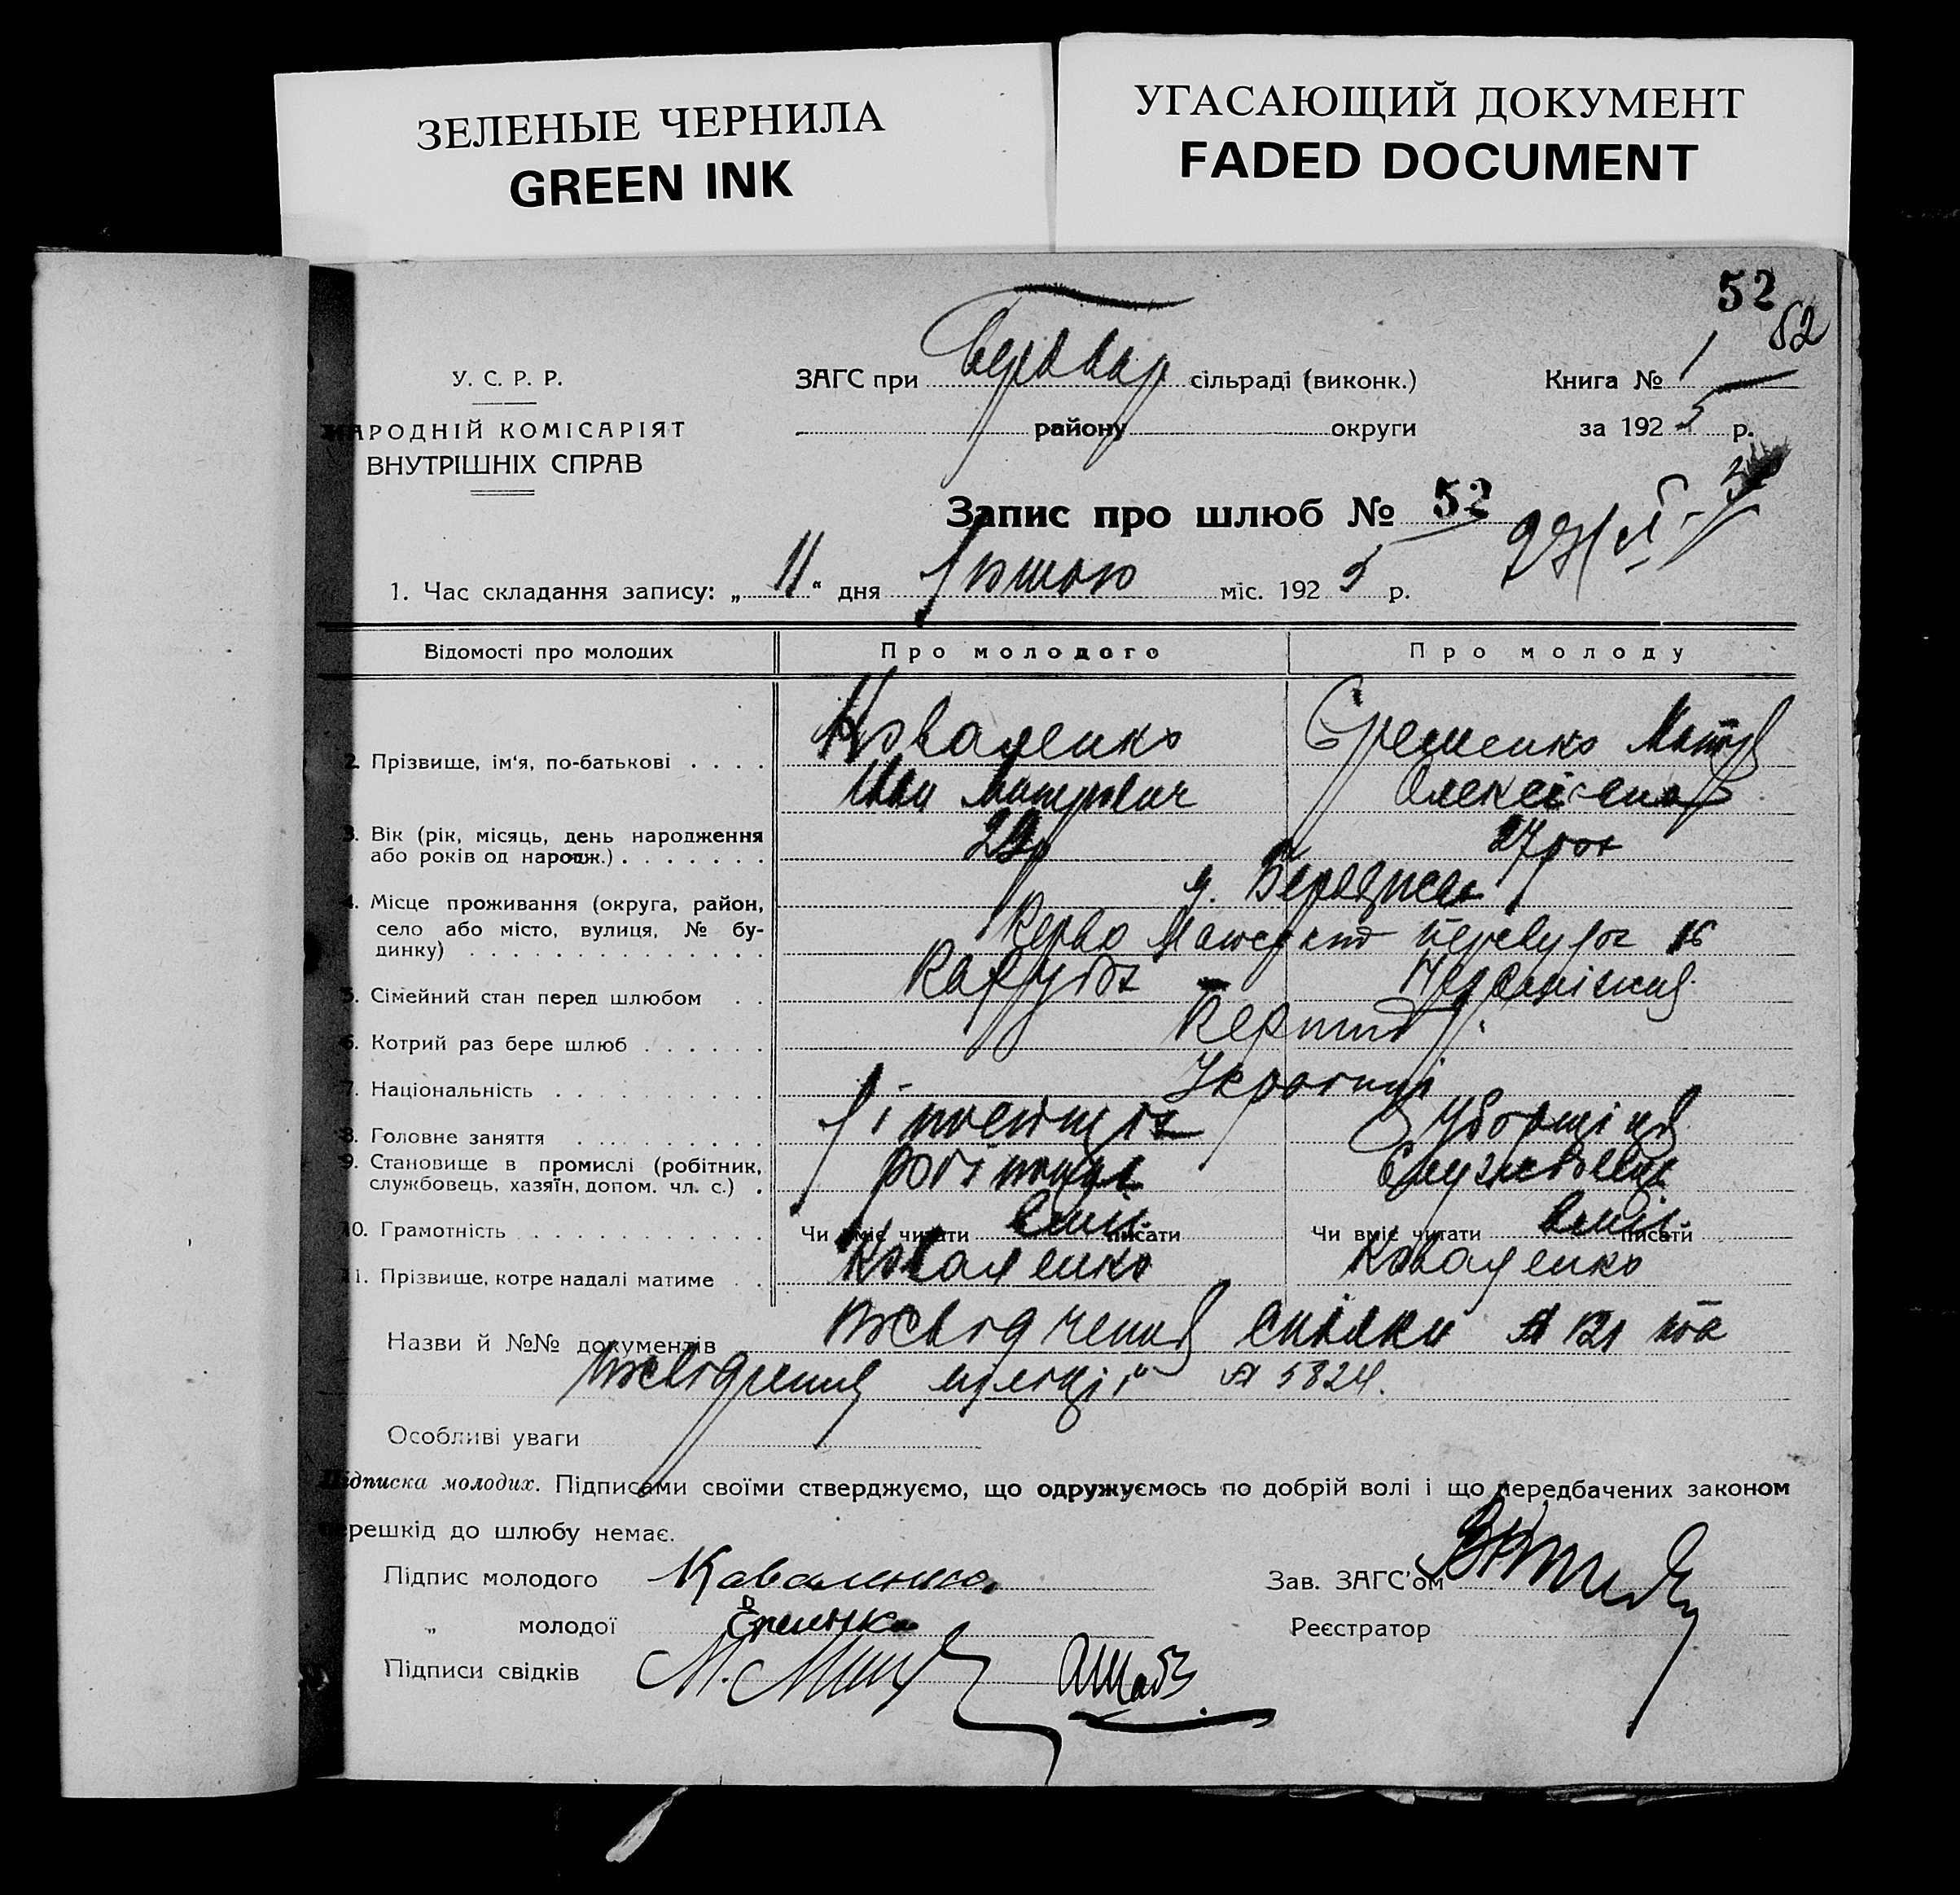 ЗЕЛЕНЫЕ ЧЕРНИЛА
GREEN INK
УГАСАЮЩИЙ ДОКУМЕНТ
FADED DOCUMENT
52
52
У. С. Р. Р.
НАРОДНІЙ КОМІСАРІЯТ
ВНУТРІШНІХ СПРАВ
ЗАГС при сільраді (виконк.)
району округи
Книга № 1
за 1925 р.
Запис про шлюб № 52
1. Час складання запису: „11“ дня Лютого міс. 1925 р.
Відомості про молодих Про молодого Про молоду
2. Прізвище, ім'я, по-батькові Коваленко
Іван Дмитрович
Єременко
Олексієвна
3. Вік (рік, місяць, день народження
або років од народж.) 22р 27 рок
4. Місце проживання (округа, район,
село або місто, вулиця, № бу-
динку)
м. Бердичев
перевулок 16
5. Сімейний стан перед шлюбом
6. Котрий раз бере шлюб
7. Національність Українці
8. Головне заняття
9. Становище в промислі (робітник,
службовець, хазяїн, допом. чл. с.) робітник Службовець
10. Грамотність Чи вміє читати вміє писати Чи вміє читати вміє писати
11. Прізвище, котре надалі матиме Коваленко Коваленко
Назви й №№ документів посвідчення спілки № 121 та
посвідчення міліції № 5824.
Особливі уваги
Підписка молодих. Підписами своїми стверджуємо, що одружуємось по добрій волі і що передбачених законом
перешкід до шлюбу немає.
Підпис молодого Коваленко
„ молодої Єременко
Підписи свідків
Зав. ЗАГС'ом
Реєстратор